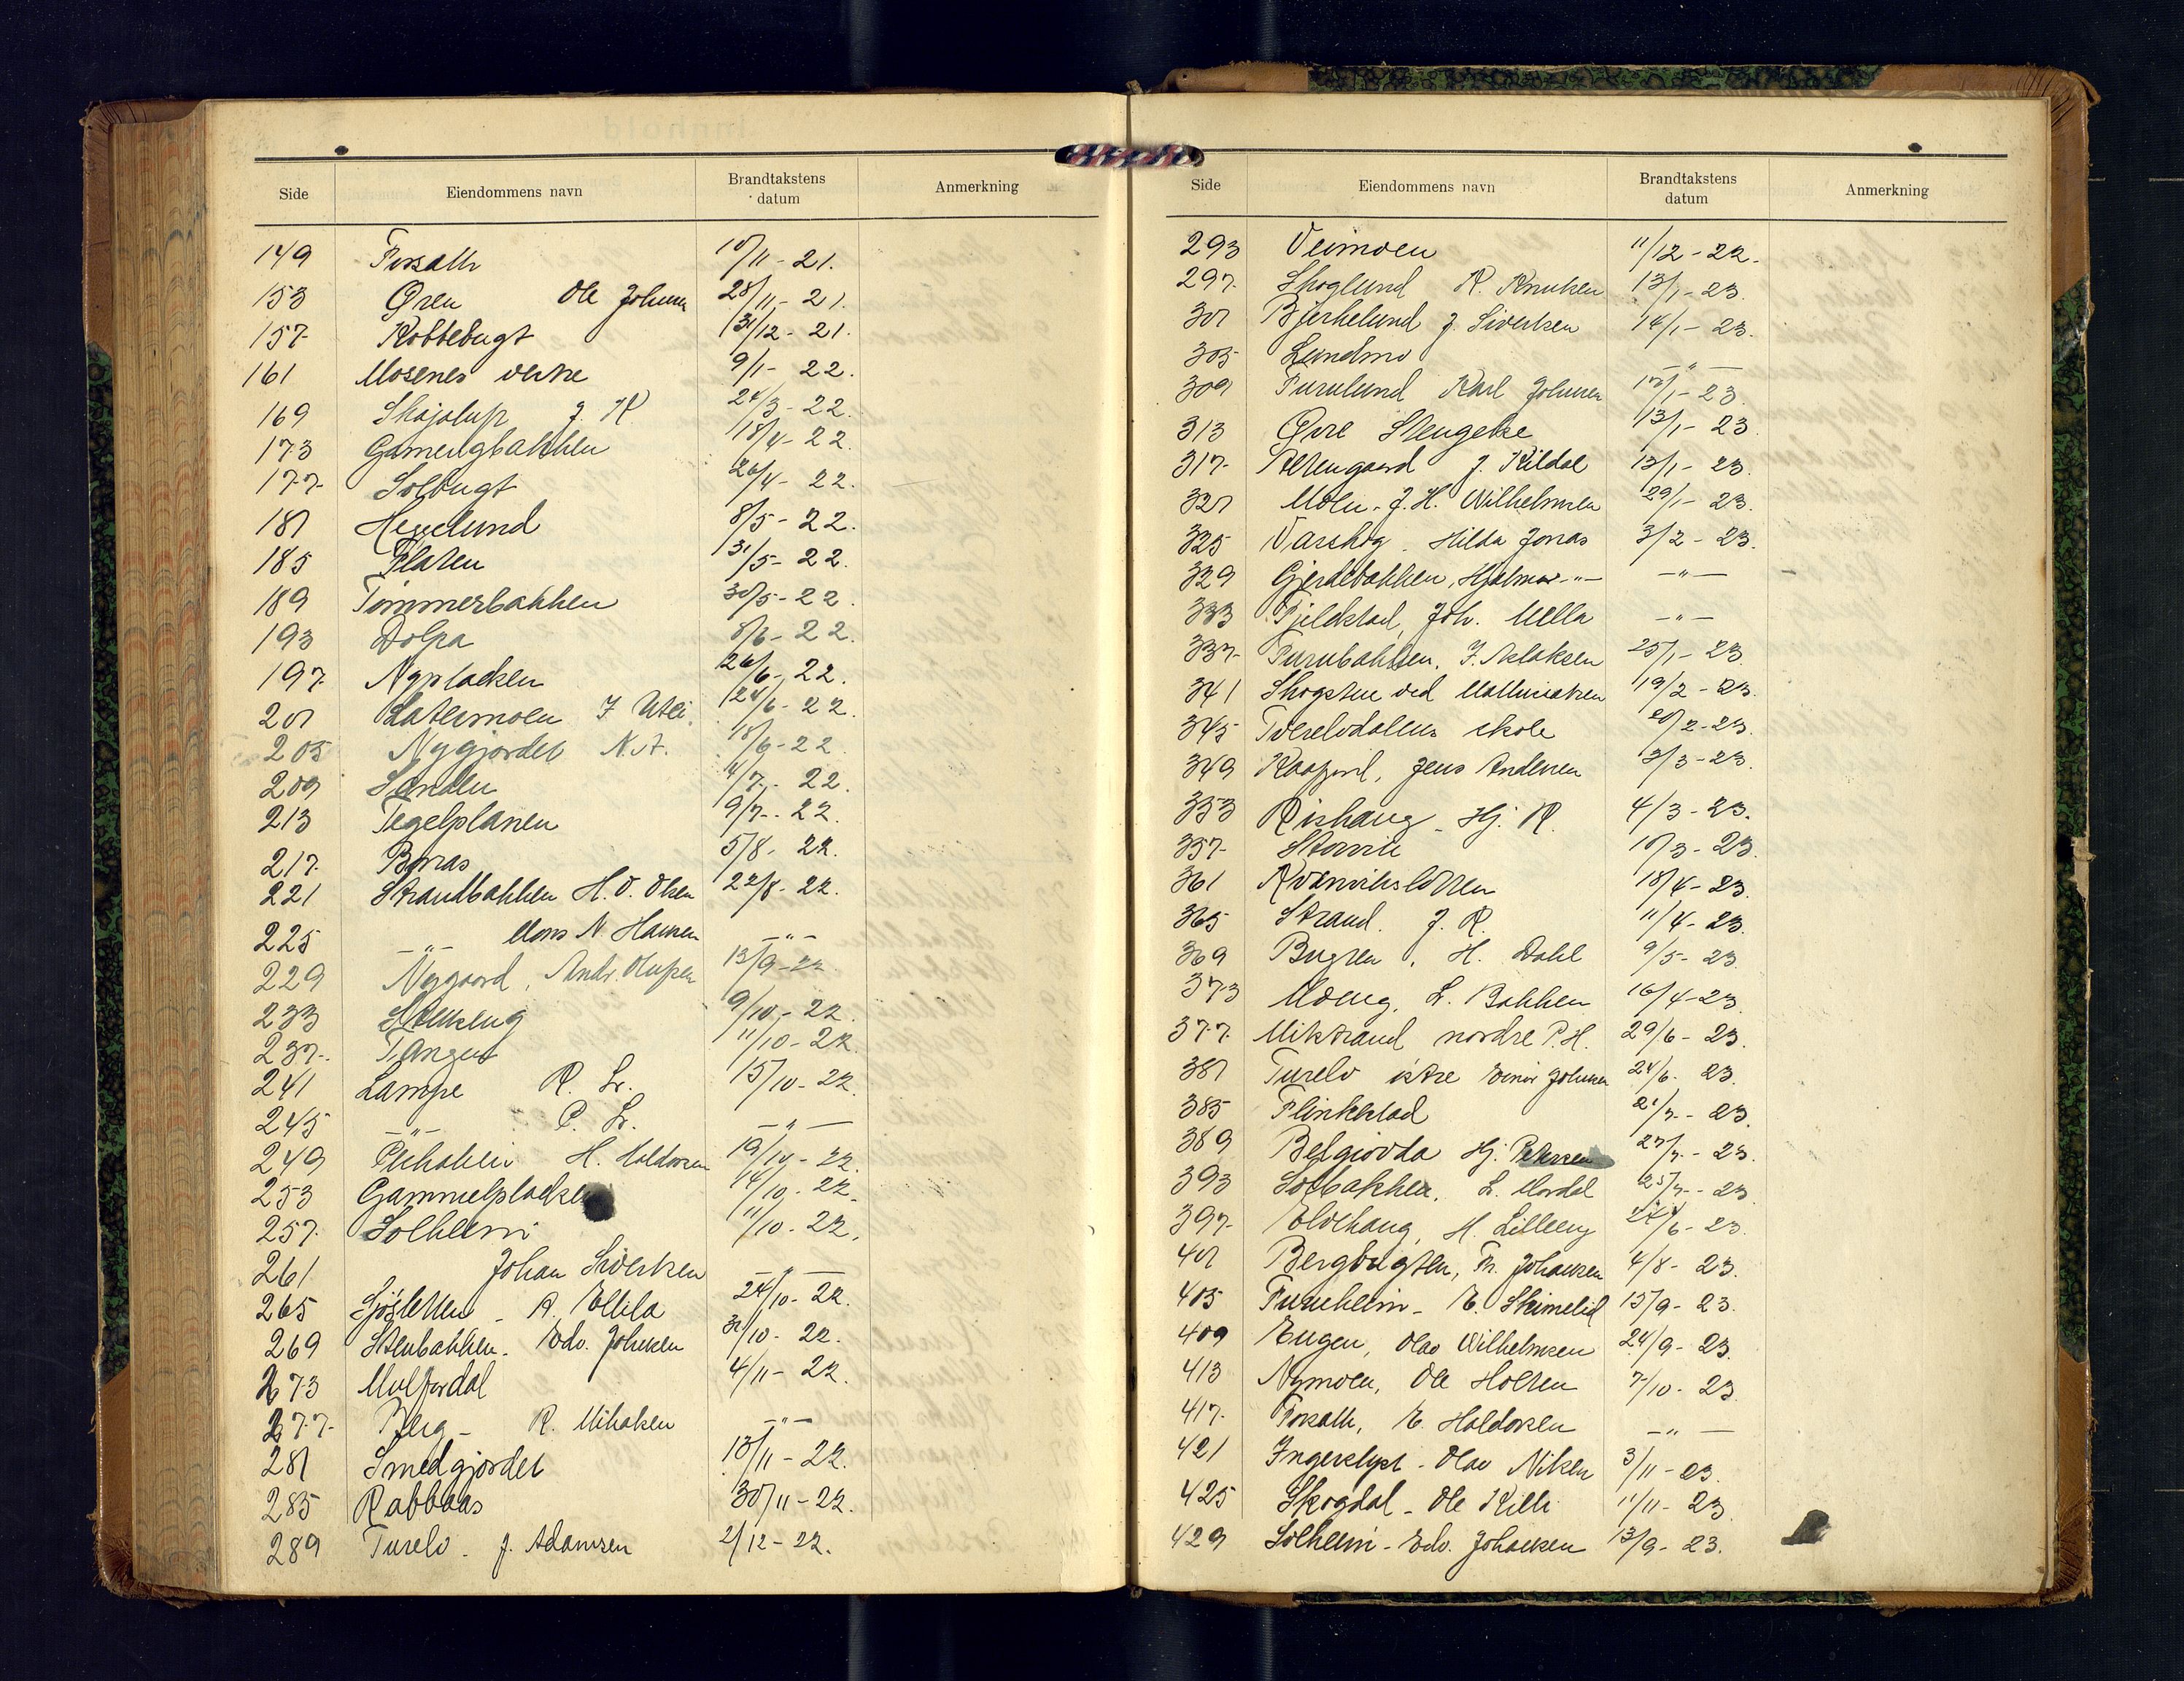 Side Eiendommens navn Brandtakstens datum Anmerkning
149 Forsath 10/11 - 21.
153 Øren Ole Johnsen 28/11 - 21.
157 Kobbebugt 31/12 - 21.
161 Mosenes vestre 9/1 - 22.
169 J. K. 24/3 - 22.
173 18/4 - 22.
177 Solbugt 26/4 - 22.
181 Heggelund 8/5 - 22.
185 Flaten 31/5 - 22.
189 Tømmerbakken 30/5 - 22.
193 Dolpa 8/6 - 22.
197 Nypladsen 26/6 - 22.
201 J. 24/6 - 22.
205 Nygjordet N. A. 18/6 - 22.
209 Sanden 4/7 - 22.
213 Tegelplanen 9/7 - 22.
217 Boras 5/8 - 22.
221 Strandbakken H. O. Olsen 22/8 - 22.
225 -"- Mons N. Hansen -"-
229 Nygaard, Andr. 13/9 - 22.
233 Stenseng 9/10 - 22.
237 Tangen 11/10 - 22.
241 Lampe R. Lr. 15/10 - 22.
245 -"- P. Lr. -"-
249 H. Haldorsen 19/10 - 22.
253 Gammelpladsen 14/10 - 22.
257 Solheim 11/10 - 22.
261 Johan Sivertsen -"-
265 Sjøsletten - A. Ellila 24/10 - 22.
269 Stenbakken - Edv. Johnsen 31/10 - 22.
273 Mulfjordal 4/11 - 22.
277 Berg - R. Mikalsen -"-
281 Smedgjordet 13/11 - 22.
285 Rabbaas 30/11 - 22.
289 Turelv - J. Adamsen 2/12 - 22.
Side Eiendommens navn Brandtakstens datum Anmerkning
293 Veimoen 11/12 - 22.
297 Skoglund K. Knutsen 13/1 - 23.
301 Bjerkelund J. Sivertsen 14/1 - 23.
305 Lundmo -"-
309 Furulund Karl Johnsen 12/1 - 23.
313 Øvre Stengelse 13/1 - 23.
317 J. Kildal 13/1 - 23.
321 Moen - J. H. Wilhelmsen 29/1 - 23.
325 Varskog. Hilda Jonas 3/2 - 23.
329 Gjerdebakken, Hjalmar -"- -"-
333 Fjeldstad, Joh. Mella -"-
337 Furubakken. J. Aslaksen 25/1 - 23.
341 Skogstue ved 19/2 - 23.
345 Tverelvdalens skole 20/2 - 23.
349 Kaafjord, Jens Andersen 3/3 - 23.
353 Rishaug - Hj. R. 4/3 - 23.
357 Storvik 10/3 - 23.
361 Kvænviksletten 18/4 - 23.
365 Strand. J. R. 11/4 - 23.
369 H. Dahl 9/5 - 23.
373 Moeng, L. Bakken 16/4 - 23.
377 Mikstrand nordre P. H. 29/6 - 23.
381 Turelv østre Einar Johnsen 24/6 - 23.
385 Flinkstad 21/7 - 23.
389 Belgiovda Hj. Petersen 27/7 - 23.
393 Solbakken, L. Mordal 25/7 - 23.
397 Elvehaug, H. Lilleeng 24/6 - 23.
401 Bergbugten, Fr. Johansen 4/8 - 23.
405 Furuheim - E. Skimelid 15/9 - 23.
409 Engen, Olav Wilhelmsen 24/9 - 23.
413 Nymoen, Ole Holten 7/10 - 23.
417 Forsath, E. Haldorsen -"-
421 Ingerslyst - Olav Nilsen 3/11 - 23.
425 Skogdal - Ole Killi 11/11 - 23.
429 Solheim - Edv. Johansen 13/9 - 23.